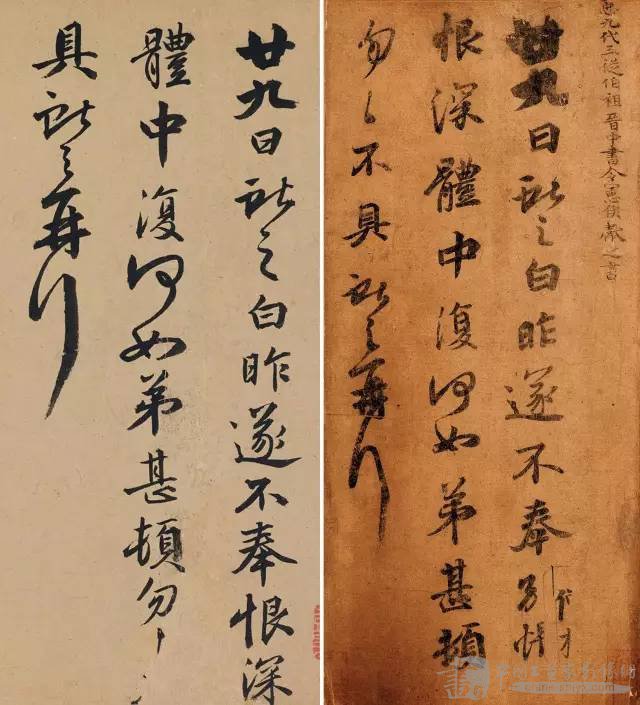 廿九日獻之白昨遂不奉恨深
體中復何如弟甚頓勿々
具獻之再拜
九代三從伯祖晉中書令憲侯獻之書
廿九日獻之白昨遂不奉別悵
恨深體中復何如弟甚頓
勿々不具獻之再拜